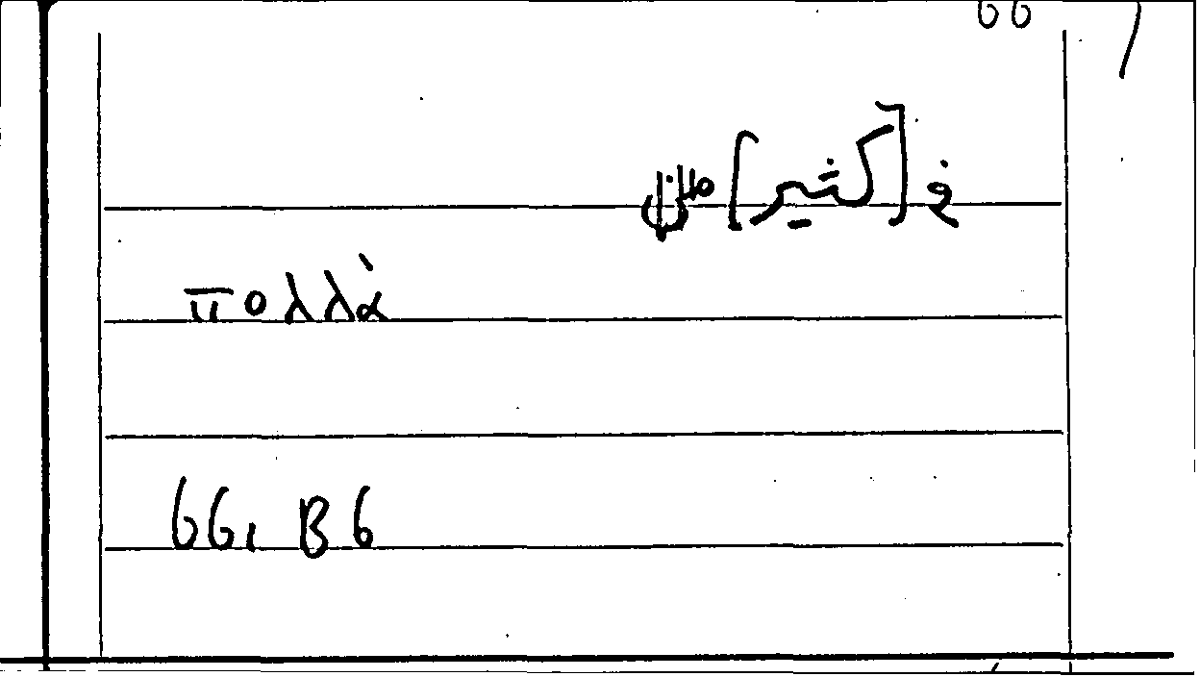 66
في [كثير] من
πολλὰ
66, B 6